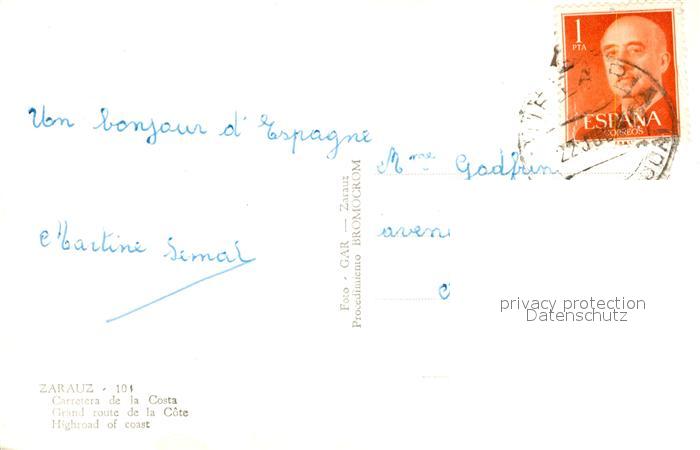 1
PTA
ESPAÑA
CORREOS
Un bonjour d'Espagne
Mme Godfrin
aven
Martine Semal
Foto - GAR — Zarauz
Procedimiento BROMOCROM
privacy protection
Datenschutz
ZARAUZ - 104
Carretera de la Costa
Grand route de la Côte
Highroad of coast